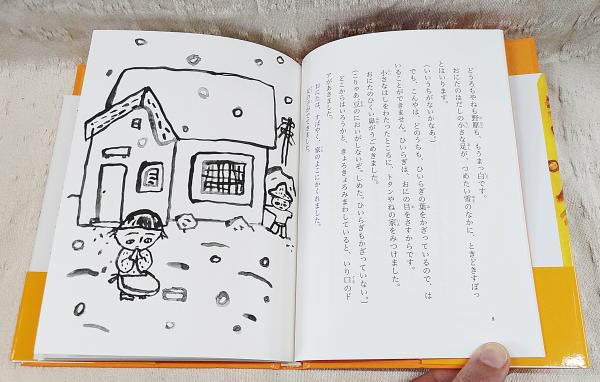 どうろもやねも野原も、もうまっ白です。
おにたのはだしの小さな足が、つめたい雪のなかに、ときどきすぽっ
とはいります。
(いいうちがないかなあ)
でも、こんやは、どのうちも、ひいらぎの葉をかざっているので、は
いることができません。ひいらぎは、おにの目をさすからです。
小さなはしをわたったところに、トタンやねの家をみつけました。
おにたのひくい鼻がうごめきました。
(こりゃあ豆のにおいがしないぞ。しめた。ひいらぎもかざっていない)
どこからはいろうかと、きょろきょろみまわしていると、いり口のド
アがあきました。
おにたは、すばやく、家のよこにかくれました。
8